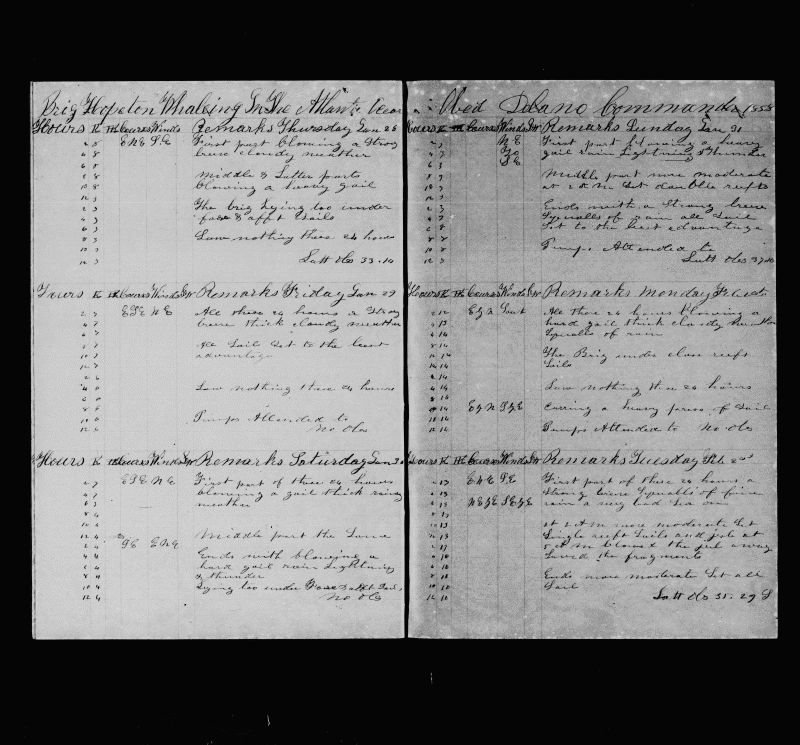 Brig Hopeton Whaling In The Atlantic Ocean
Hours K Courses Winds Remarks Thursday Jan 28
ENE SE First part blowing a Strong
breeze cloudy weather
Middle & Latter parts
blowing a heavy gail
The brig lying too under
fore & aft Sails
Saw nothing these 24 hours
Latt Obs 33.10
Hours K Courses Winds Remarks Friday Jan 29
ESE NE All these 24 hours a Strong
breeze thick cloudy weather
All Sail Set to the best
advantage
Saw nothing these 24 hours
Pumps Attended to
No Obs
Hours K Courses Winds Remarks Saturday Jan 30
ESE NE First part of these 24 hours
blowing a gail thick rainy
weather
Middle part the Same
SE ENE
Ends with blowing a
hard gail rain Lightning
& thunder
Lying too under Fore & aft Sails
No Obs
Obed Commander 1858
Hours K Courses Winds Remarks Sunday Jan 31
NE First part blowing a heavy
To gail rain Lightning & thunder
SE
Middle part more moderate
at 2 A M Set double reefs
Ends with a Strong breeze
Squalls of rain all Sail
Set to the best advantage
Pumps Attended to
Latt Obs 37.10
Hours K Courses Winds Remarks Monday Feb
All these 24 hours blowing a
hard gail thick cloudy weather
Squalls of rain
The Brig under close reeft
Sails
Saw nothing these 24 hours
Carring a heavy press of Sail
Pumps Attended to No Obs
Hours K Courses Winds Remarks Tuesday Feb 2nd
ENE SE First part of these 24 hours a
Strong breeze Squalls of
rain a very bad Sea on
at 2 A M more moderate Set
Single reeft Sails and jib at
5 A M blowed the jib away
Saved the fragments
Ends more moderate Set all
Sail
Latt Obs 35.29